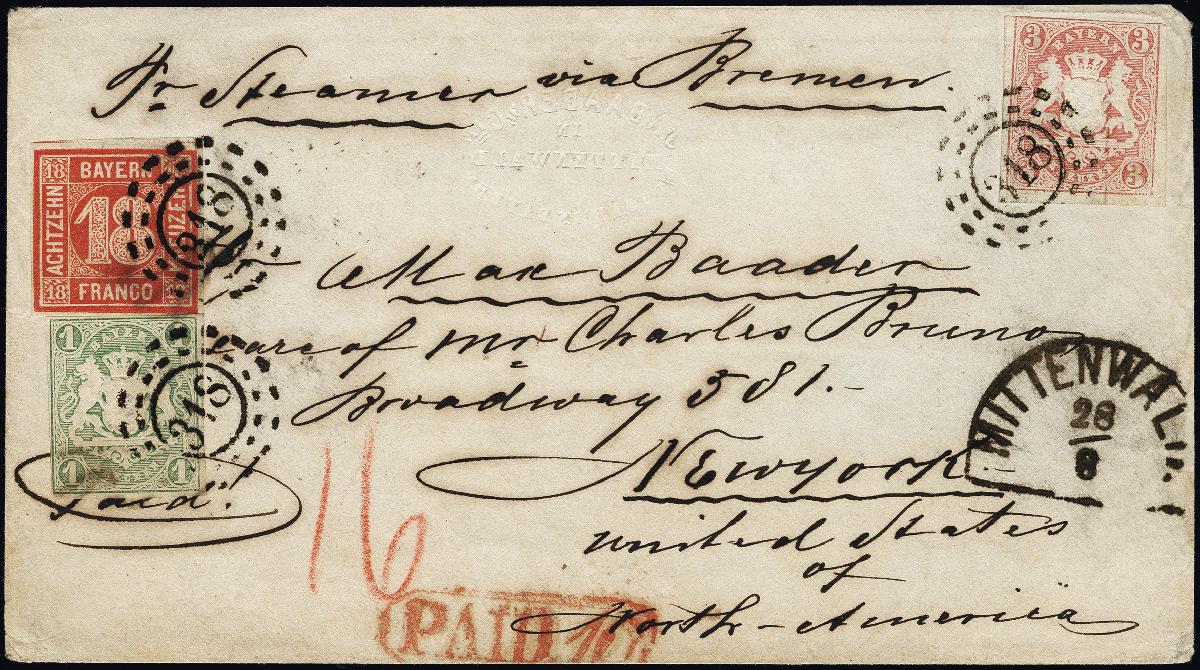 Pr Steamer via Bremen.
3 BAYERN 3
3
318
BAADER
IN
MITTENWALD
18 BAYERN
ACHTZEHN 18 UZER
18 FRANCO
318
Max Baader
care of Mr Charles Bruno
Broadway 581.-
1
318
1 1
Paid!
Newyork
united States
of
North-America
MITTENWAL
28
8
16
PAID